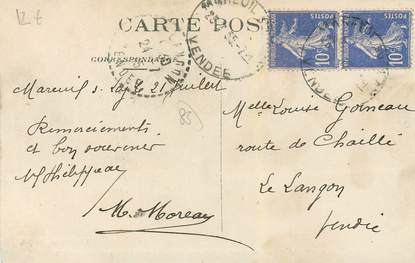 12 €
MAREUIL
VENDÉE
CARTE POST
CORRESPONDANCE
POSTES
10c
POSTES
10c
LANGON
VENDÉE
Mareuil s. Lay, 21 juillet
Remerciements
et bon souvenir
M. Moreau
83
Melle Louise
route de Chaillé
Le Langon
Vendée